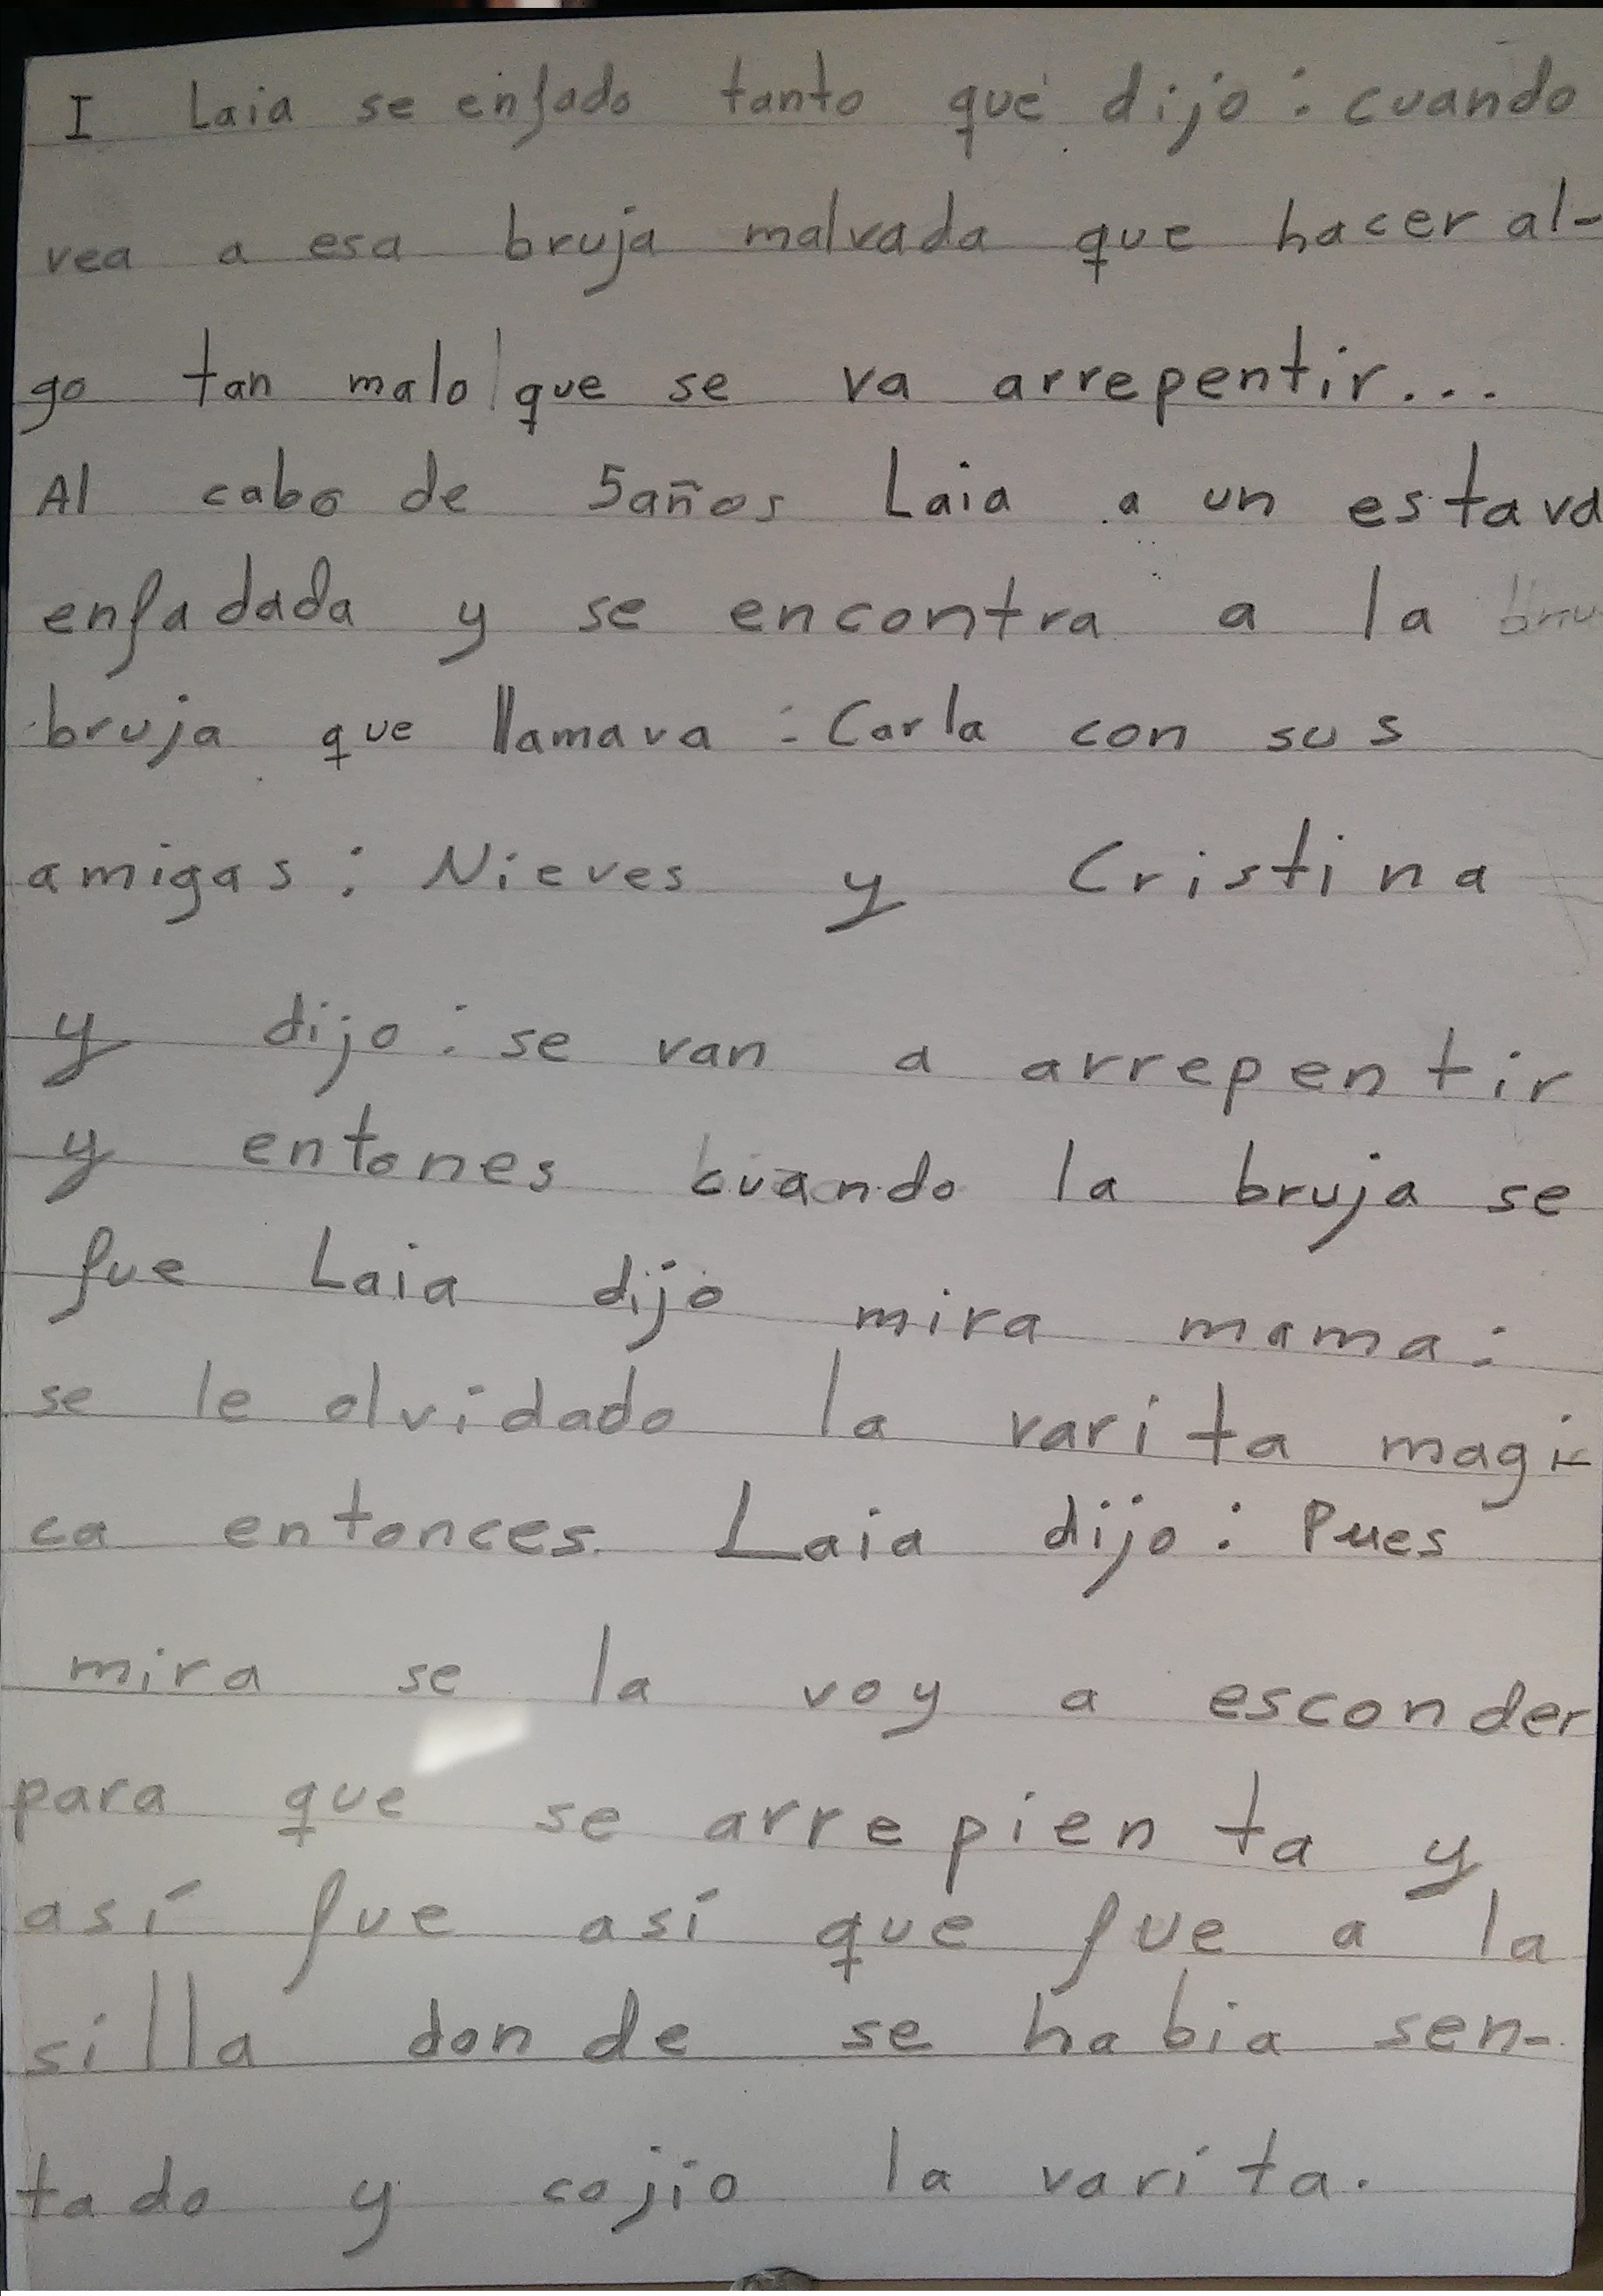 I Laia se enfado tanto que dijo: cuando
vea a esa bruja malvada que hacer al-
go tan malo que se va arrepentir...
Al cabo de 5años Laia a un estava
enfadada y se encontra a la bru
bruja que llamava: Carla con sus
amigas: Nieves y Cristina
y dijo: se van a arrepentir
y entones cuando la bruja se
fue Laia dijo mira mama:
se le olvidado la varita magi-
ca entonces Laia dijo: Pues
mira se la voy a esconder
para que se arrepienta y
así fue así que fue a la
silla donde se habia sen-
tado y cojio la varita.